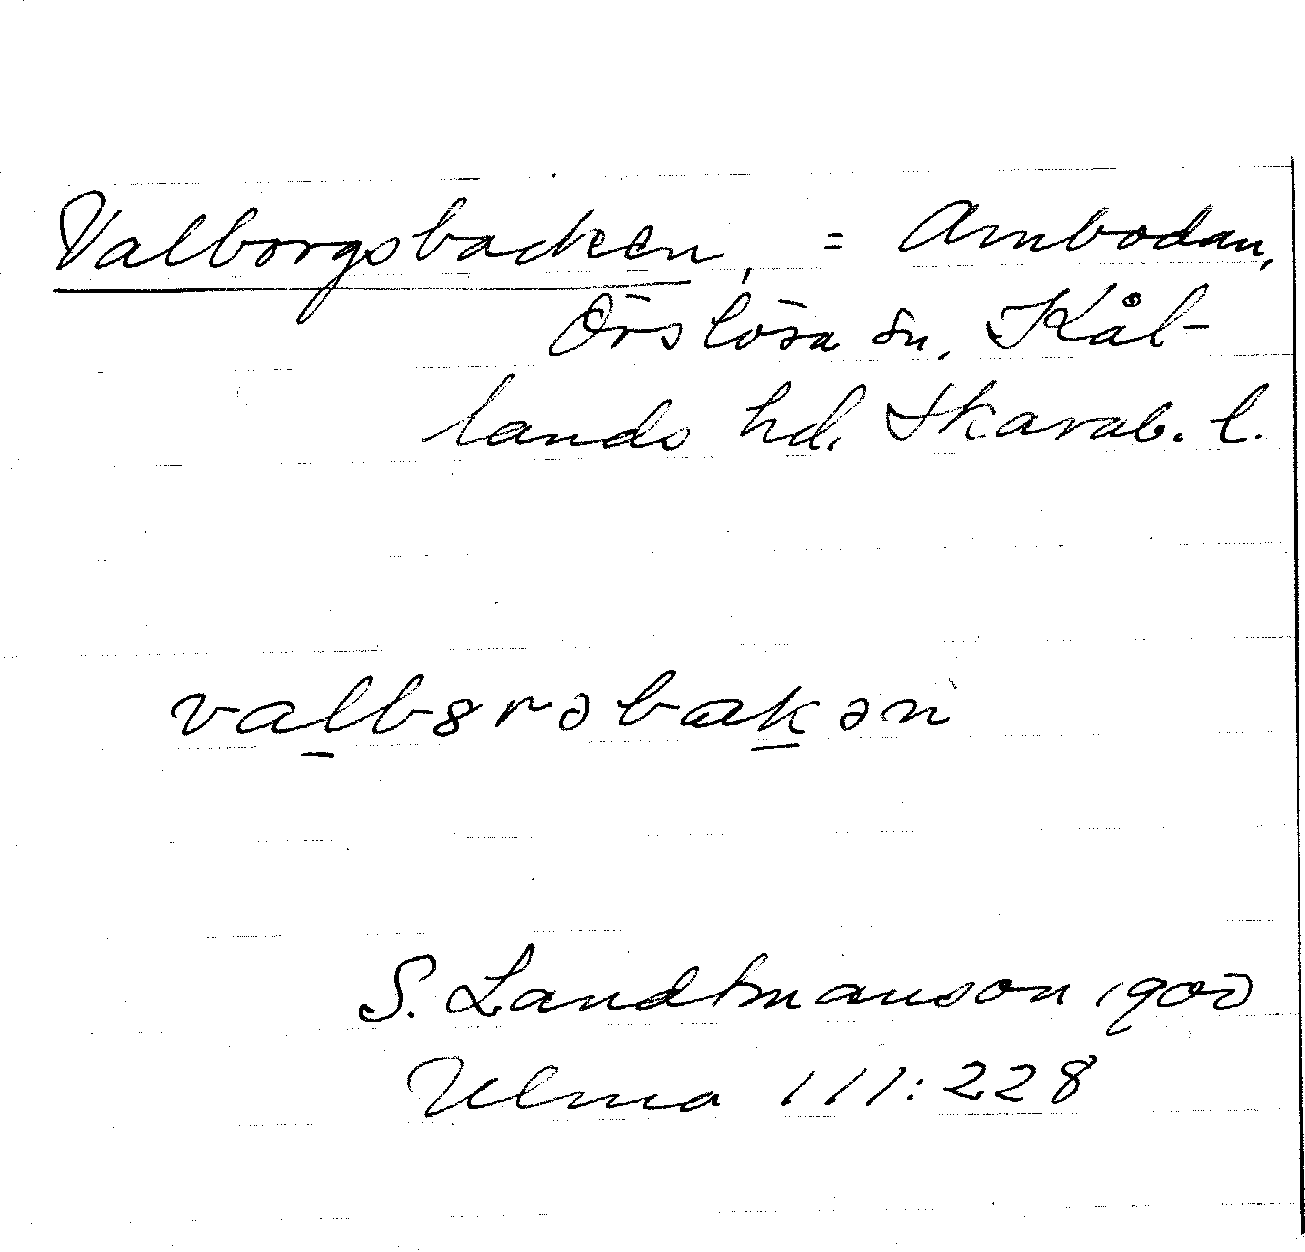 Valborgsbacken, = Ambodan,
Örslösa sn, Kål-
lands hd. Skarab. l.
valbɞrəbakən
S. Landtmanson 1900
Ulma 111:228